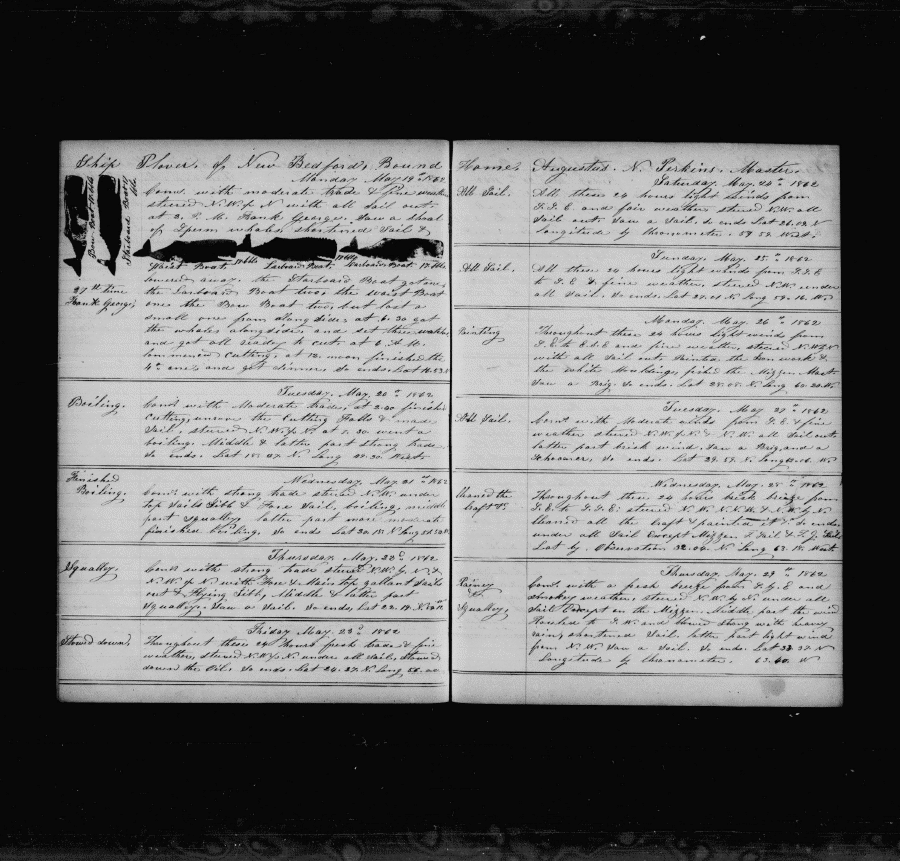 Ship Plover, of New Bedford, Bound
Monday May 19th 1862
Coms. with moderate trade & fine weather
steered N.W. by N with all sail out
at 3. P.M. Frank George. Saw a shoal
of Sperm whales, shortened Sail &
Bow Boat
Starboard Boat
Waist Boat Larboard Boat. Larboard Boat.
27th Time
Frank George,
lowered away. the Starboard Boat got one,
the Larboard Boat two, the Waist Boat
one the Bow Boat two, but lost a
small one from alongside, at 6.30 got
the whales alongside and set three watches
and got all ready to cut at 6 A.M.
Commenced Cutting, at 12. noon finished the
4th one, and got dinner. So ends. Lat
Tuesday, May, 20th 1862
Boiling.
Coms. with Moderate trades, at 2.30 finished
Cutting, unrove the Cutting Falls & made
Sail, steered N.W. by N. at 5.30 went a
boiling. Middle & latter part strong trade
So ends. Lat 18.47 N. Long
Wednesday, May 21st 1862
Finished
Boiling.
Coms. with strong trade steered N.W. under
top Sails Jibb & Fore Sail, boiling, middle
part squally, latter part more moderate
finished boiling. So ends Lat 20.18. N Long
Thursday May. 22d. 1862
Squally.
Coms with strong trade steered N.W. by N. &
N.W. by N. with Fore & Main top gallant Sails
out & Flying Jibb, Middle & latter part
Squally. Saw a Sail. So ends, Lat 22.19. N.
Friday May. 23d. 1862
Stowed down.
Throughout these 24 hours fresh trades & fine
weather, steered N.W. by N. under all Sail, stowed
down the Oil. So ends. Lat 24.27. N. Long
Home. Augustus. N. Perkins. Master.
Saturday. May. 24th 1862
All Sail.
All these 24 hours light winds from
S.S.E and fair weather steered N.W. all
Sail out. Saw a Sail. So ends Lat 26.02 N
Longitude by Chronometer. 59.52. West.
Sunday. May. 25th 1862
All Sail.
All these 24 hours light winds from S.S.E
to S.E & fine weather, steered N.W. under
all Sail. So ends. Lat 27.01 N Long 59.16. W
Monday. May. 26th 1862
Painting
Throughout these 24 hours light winds from
S.E. to E.S.E and fine weather, steered N.W. by N
with all Sail out. Painted the Iron work &
the White Mouldings, fished the Mizzen Mast
Saw a Brig. So ends. Lat 28.08. N. Long 60.20. W
Tuesday. May 27th 1862
All Sail.
Coms. with Moderate winds from S.E. & fine
weather steered N.W. by N. & N.W. all Sail out,
latter part brisk wind. Saw a Brig, and a
Schooner. So ends. Lat 29.59. N. Long
Wednesday. May. 28th 1862
Cleaned the
Craft &c.
Throughout these 24 hours brisk breeze from
S.E. to S.S.E: steered N.W. N.N.W. & N.W. by N.
Cleaned all the Craft & painted it &c. So ends
under all Sail Except Mizzen T Sail & T.G. Sail
Lat by Observation 32.04. N. Long 63.18. West
Thursday. May. 29th 1862
Rainey
&
Squalley.
Coms. with a fresh breeze from S by E and
smokey weather, steered N.W. by N. under all
Sail Except on the Mizzen. Middle part the wind
Hauled to S.W. and blowed strong with heavy
rain, shortened Sail. latter part light wind
from N.W. Saw a Sail. So ends. Lat 33.37. N
Longitude by Chronometer. 63.40. W